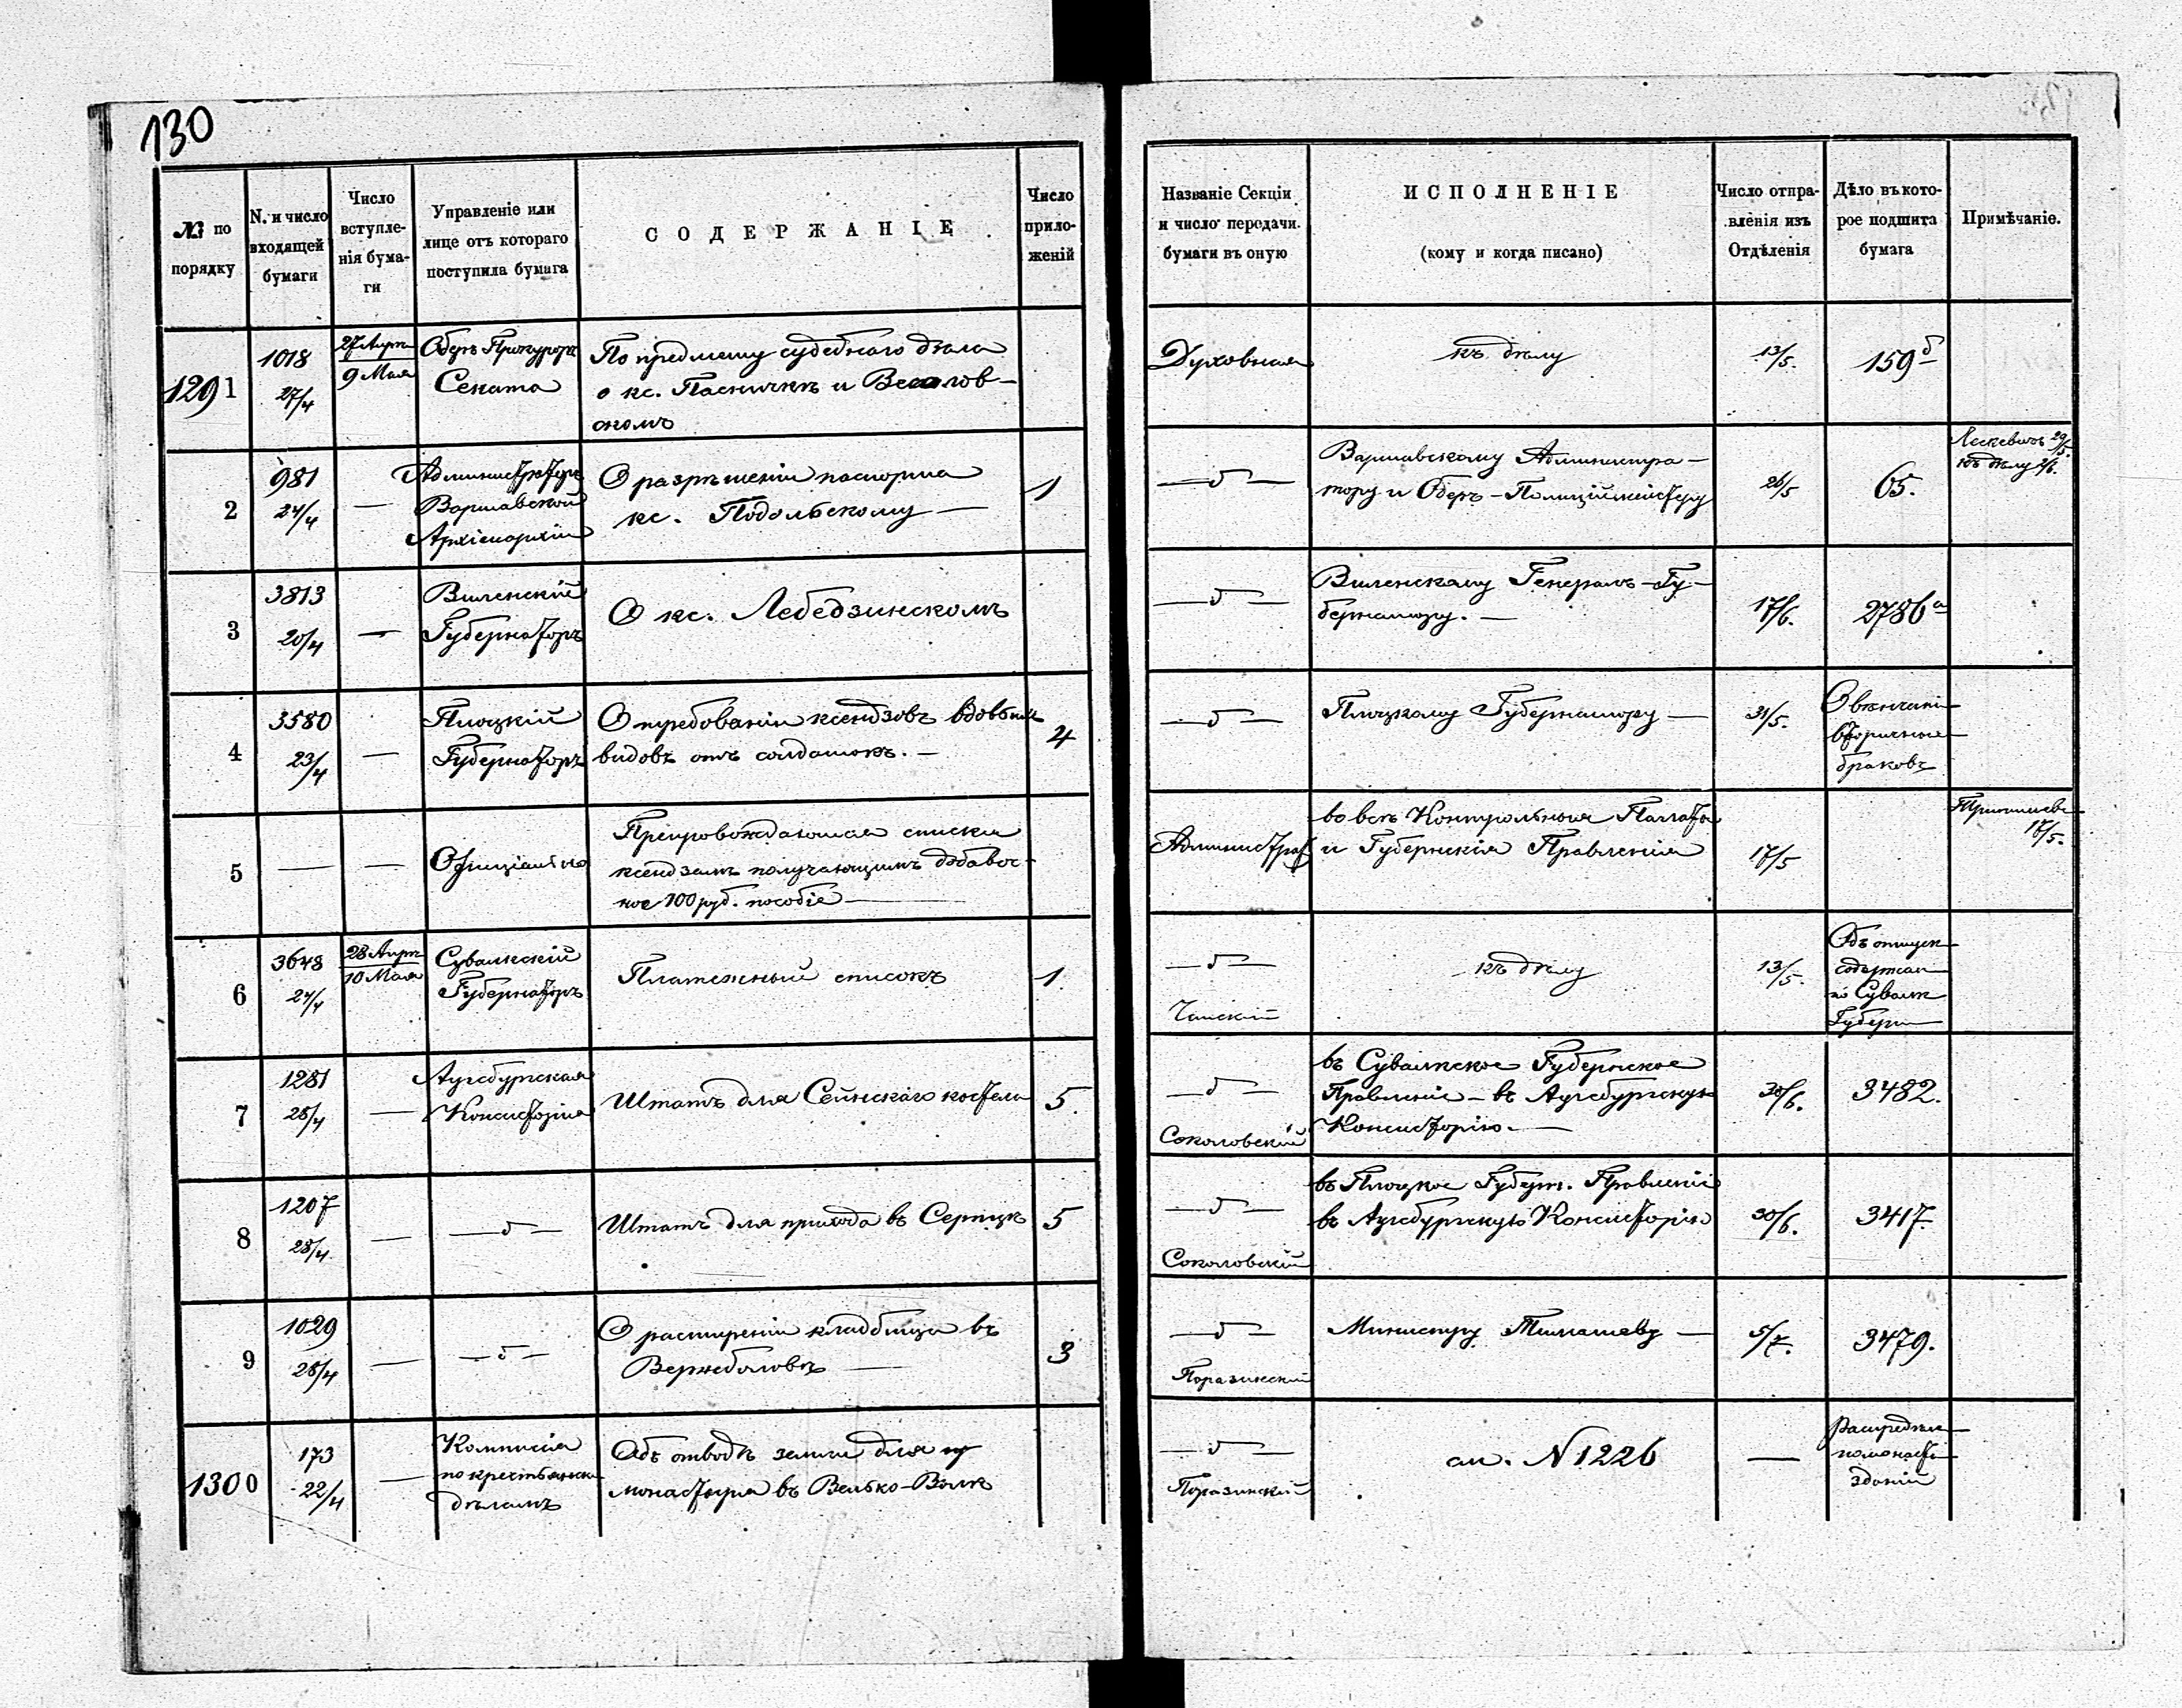 130
№ по
порядку
N. и число
входящей
бумаги
Число
вступле-
нія бума-
ги
Управленіе или
лице отъ котораго
поступила бумага
СОДЕРЖАНІЕ
Число
прило-
женій
Названіе Секціи
и число передачи
бумаги въ оную
ИСПОЛНЕНІЕ
(кому и когда писано)
Число отпра-
вленія изъ
Отдѣленія
Дѣло въ кото-
рое подшита
бумага
Примѣчаніе.
1291
1018
27/4
27 Апр
9 Мая
Оберъ Прокуроръ
Сената
По предмету судебнаго дѣла
о кс. и
скомъ
Духовная
къ дѣлу
13/5.
159 б
2
981
24/4
—
Администраторъ
Варшавской
Архіепархіи
О разрѣшеніи паспорта
кс. Подольскому —
1
— „ —
Варшавскому Администра-
тору и Оберъ-Полиціймейстеру
26/5
65.
29/5.
къ дѣлу 2/6.
3
3813
20/4
—
Виленскій
Губернаторъ
О кс. Лебедзинскомъ
— „ —
Виленскому Генералъ-Гу-
бернатору. —
17/6.
2786 а
4
3580
23/4
—
Плоцкій
Губернаторъ
О требованіи ксендзовъ вдовьихъ
видовъ отъ солдатокъ. —
4
— „ —
Плоцкому Губернатору —
31/5.
О вѣнчаніи
вторичные
браковъ
5
—
—
Офиціально
Препровождающая списки
ксендзамъ получающимъ добавоч-
ное 100 руб. пособіе —
Администрат
во всѣ Контрольныя Палаты
и Губернскія Правленія
17/5
17/5.
6
3648
24/4
28 Апр
10 Мая
Сувалкскій
Губернаторъ
Платежный списокъ
1
— „ —
къ дѣлу
13/5.
Объ отпуск
содержан
по Сувалк
Губерн
7
1281
28/4
—
Аугсбургская
Консисторія
Штатъ для Сейнскаго костела
5.
— „ —
Соколовскій
въ Сувалкское Губернское
Правленіе — въ Аугсбургскую
Консисторію. —
30/6.
3482.
8
1207
28/4
—
— „ —
Штатъ для прихода въ Серпцѣ
5
— „ —
Соколовскій
въ Плоцкое Губерн. Правленіе
въ Аугсбургскую Консисторію
30/6.
3417.
9
1029
28/4
—
— „ —
О расширеніи кладбища въ
Вержболовѣ —
3
— „ —
Поразинскій
Министру Тимашеву —
5/7.
3479.
1300
173
22/4
—
Коммисія
по крестьянски
дѣламъ
Объ отводѣ земли для
монастыря въ Велько-Волѣ
— „ —
Поразинскій
сл. N 1226
—
Распредѣле
помонаст
зданій